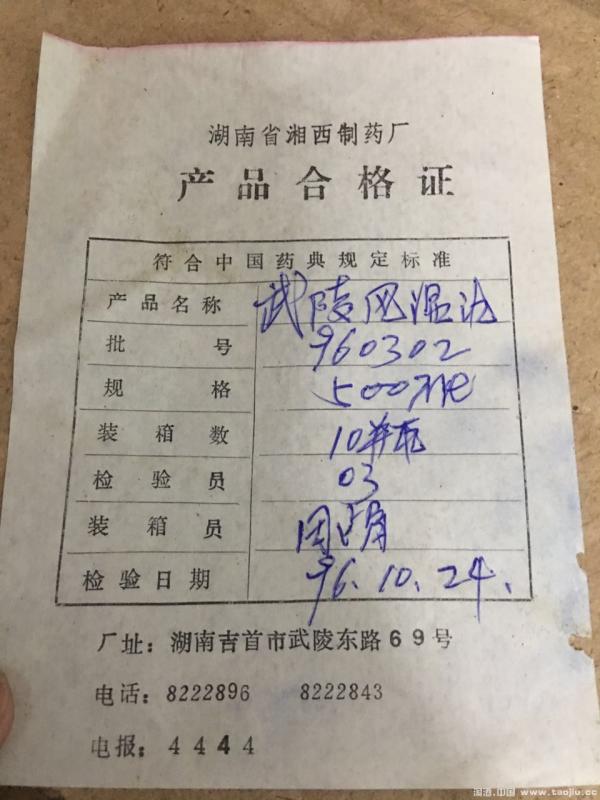 湖南省湘西制药厂
产品合格证
符合中国药典规定标准
产品名称 武陵风湿酒
批号 960302
规格 500ml
装箱数 10并瓶
检验员 03
装箱员
检验日期 96.10.24.
厂址：湖南吉首市武陵东路69号
电话：8222896 8222843
电报：4444
淘酒.中国 www.taojiu.cc